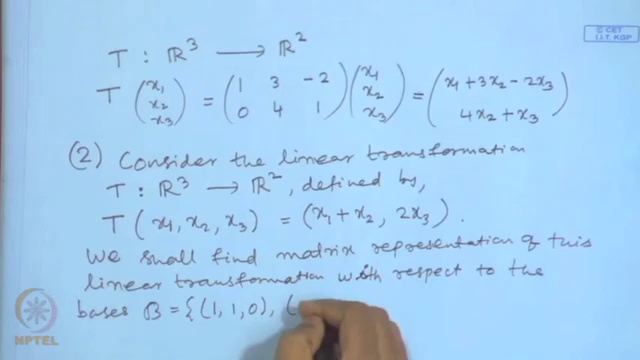 © CET
I.I.T. KGP
T : ℝ³ ⟶ ℝ²
T (x₁ x₂ x₃) = (1 3 -2 / 0 4 1) (x₁ x₂ x₃) = (x₁ + 3x₂ - 2x₃ / 4x₂ + x₃)
(2) Consider the linear transformation
T : ℝ³ ⟶ ℝ², defined by,
T (x₁, x₂, x₃) = (x₁ + x₂, 2x₃) .
We shall find matrix representation of this
linear transformation with respect to the
bases B = {(1, 1, 0), (
NPTEL